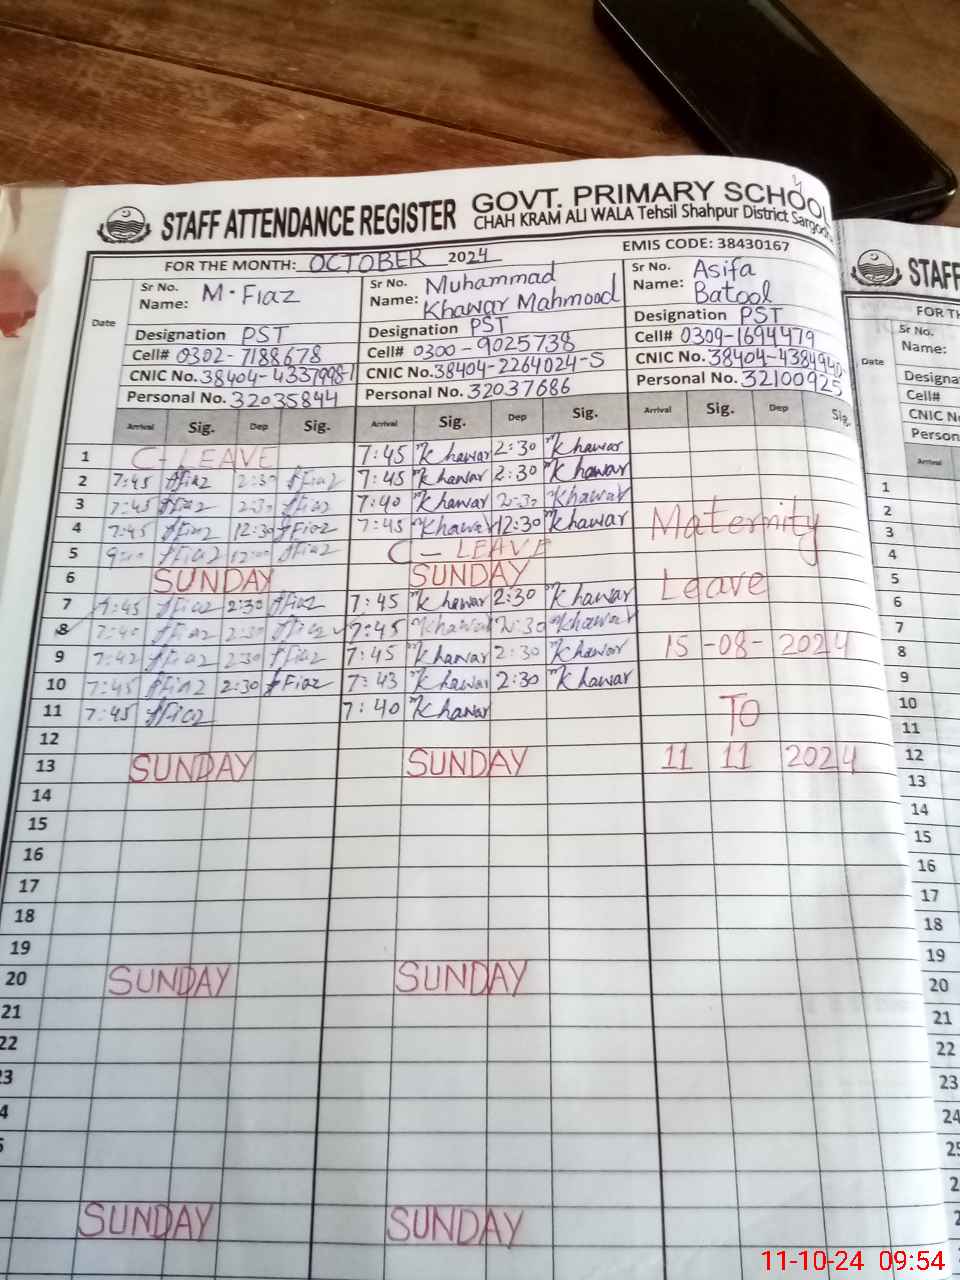 STAFF ATTENDANCE REGISTER GOVT. PRIMARY SCHOOL
CHAH KRAM ALI WALA Tehsil Shahpur District
FOR THE MONTH: OCTOBER 2024 EMIS CODE: 38430167
Date
Sr No. Name: M. Fiaz
Designation PST
Cell# 0302-7188678
CNIC No.
Personal No. 32035844
Sr No. Name: Muhammad Khawar Mahmood
Designation PST
Cell# 0300-9025738
CNIC No. 38404-2264024-5
Personal No. 32037686
Sr No. Name: Asifa Batool
Designation PST
Cell# 0309-1694479
CNIC No.
Personal No. 32100925
Arrival Sig. Dep Sig. Arrival Sig. Dep Sig. Arrival Sig. Dep Sig.
1 C-LEAVE 7:45 Khawar 2:30 Khawar
2 7:45 Fiaz 2:30 Fiaz 7:45 Khawar 2:30 Khawar
3 7:45 Fiaz 2:30 Fiaz 7:40 Khawar 2:30 Khawar
4 7:45 Fiaz 12:30 Fiaz 7:45 Khawar 12:30 Khawar
5 Fiaz Fiaz C-LEAVE
6 SUNDAY SUNDAY
7 7:45 Fiaz 2:30 Fiaz 7:45 Khawar 2:30 Khawar
8 7:40 Fiaz 2:30 Fiaz 7:45 Khawar 2:30 Khawar
9 7:42 Fiaz 2:30 Fiaz 7:45 Khawar 2:30 Khawar
10 7:45 Fiaz 2:30 Fiaz 7:43 Khawar 2:30 Khawar
11 7:45 Fiaz 7:40 Khawar
12
13 SUNDAY SUNDAY
14
15
16
17
18
19
20 SUNDAY SUNDAY
21
22
23
SUNDAY SUNDAY
Maternity
Leave
15-08-2024
TO
11 11 2024
STAFF
Sr No.
Name:
Date
Cell#
Arrival
1
2
3
4
5
6
7
8
9
10
11
12
13
14
15
16
17
18
19
20
21
22
23
24
11-10-24 09:54